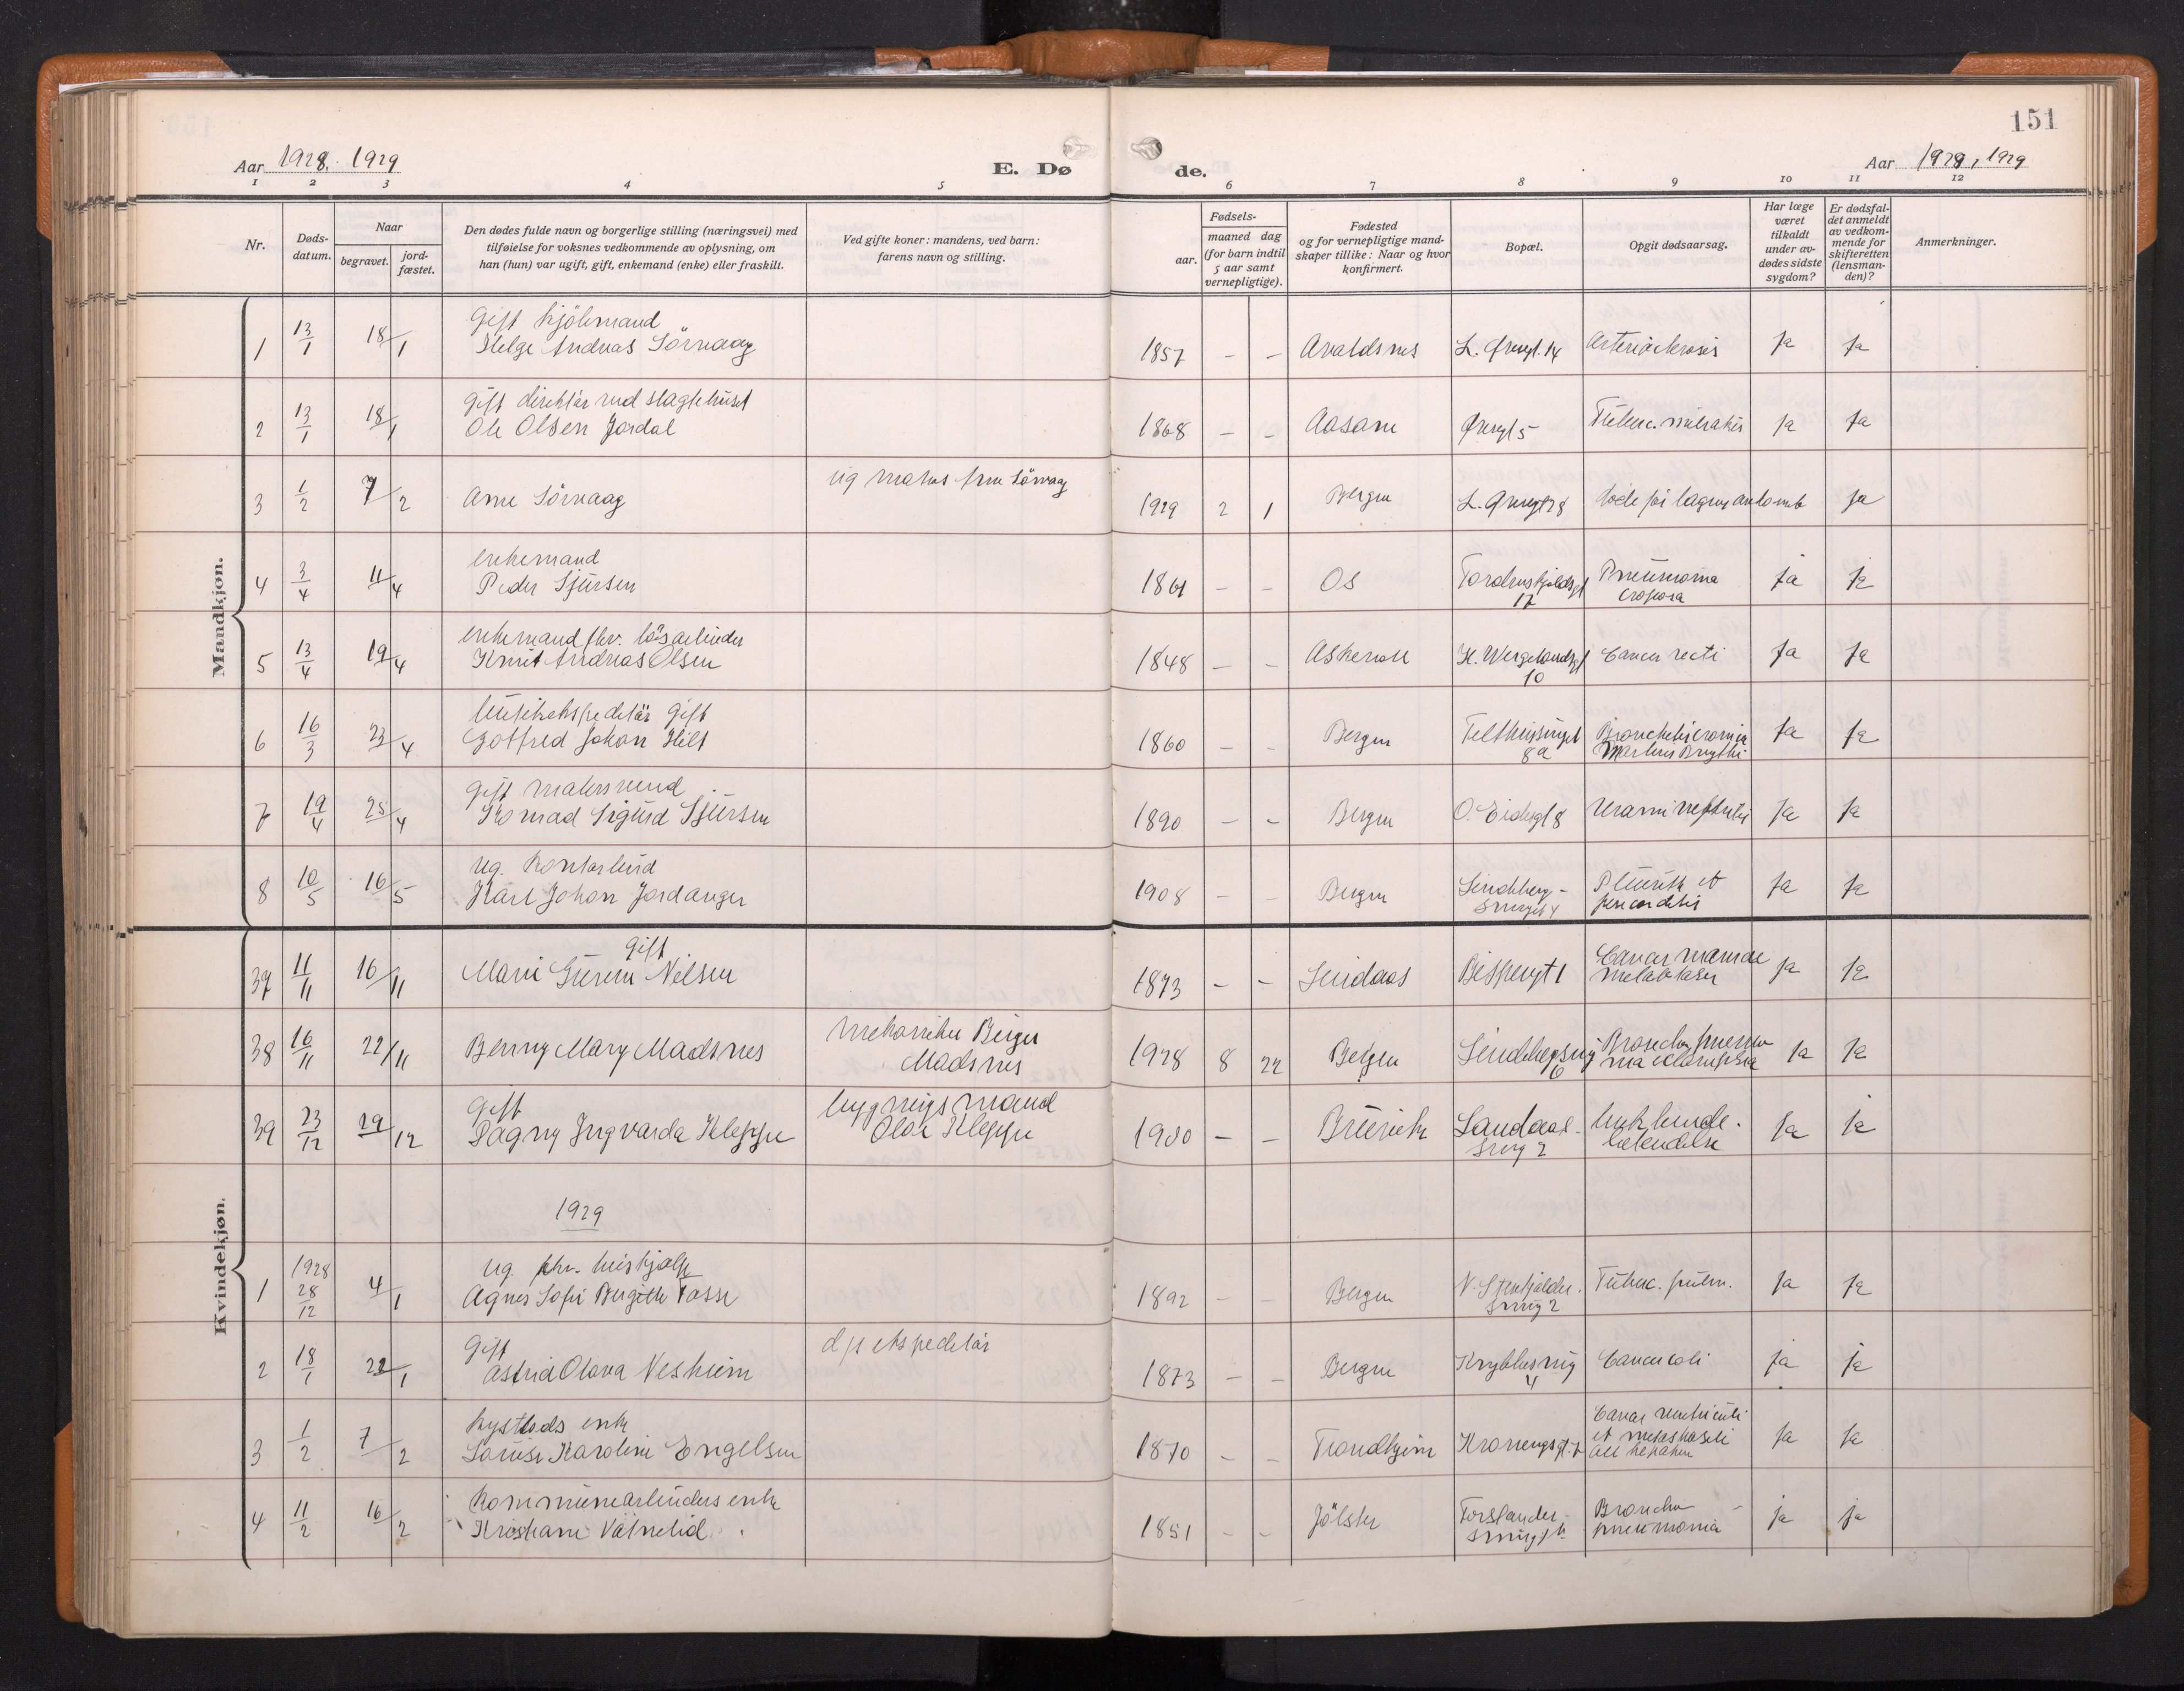 151
Aar 1928. 1929
E. Dø
de.
Aar 1928, 1929
1 2 3 4 5 6 7 8 9 10 11 12
Nr.
Døds-
datum.
Naar
begravet.
jord-
fæstet.
Den dødes fulde navn og borgerlige stilling (næringsvei) med
tilføielse for voksnes vedkommende av oplysning, om
han (hun) var ugift, gift, enkemand (enke) eller fraskilt.
Ved gifte koner: mandens, ved barn:
farens navn og stilling.
Fødsels-
aar.
maaned dag
(for barn indtil
5 aar samt
vernepligtige).
Fødested
og for vernepligtige mand-
skaper tillike: Naar og hvor
konfirmert.
Bopæl.
Opgit dødsaarsag.
Har læge
været
tilkaldt
under av-
dødes sidste
sygdom?
Er dødsfal-
det anmeldt
av vedkom-
mende for
skifteretten
(lensman-
den)?
Anmerkninger.
Mandkjøn.
Gift kjølemand
1 13/1 18/1 Helge Andreas Sörvaag 1857 - - Avaldsnes L. Øvregt. 14 Arteriosclerosis Ja Ja
Gift direktör ved slagtehuset
2 13/1 18/1 Ole Olsen Jordal 1868 - - Aasane Øvregt 5 Tuberc. miliaris Ja Ja
3 1/2 7/2 Arne Sörvaag ug 1929 2 1 Bergen L. Øvregt 28 Ja
enkemand
4 3/4 11/4 Peder Sjursen 1861 - - Os Tordenskjoldsgt Pneumonia Ja Ja
17 crouposa
enkemand fhv. lösarbeider
5 13/4 19/4 Knut Andreas Olsen 1848 - - Askevoll H. Wergelandsgt Cancer recti Ja Ja
10
butikekspeditör gift
6 16/3 23/4 Gotfred Johan Hilt 1860 - - Bergen Telthussmuget Ja Ja
8a Morbus Brightii
gift malersvend
7 19/4 25/4 Konrad Sigurd Sjursen 1890 - - Bergen O. Eidesgt 8 Uræmi nephritis Ja Ja
ug. kontorbud
8 10/5 16/5 Karl Johan Jordanger 1908 - - Bergen Lindeberg- Pleurit et Ja Ja
smuget 4 pericarditis
Kvindekjøn.
gift
37 11/11 16/11 Marie Gurine Nilsen 1873 - - Lindaas Bispengt 1 Cancer mammae Ja Ja
metastaser
mekaniker Birger
38 16/11 22/11 Benny Mary Madsnes 1928 8 22 Bergen Broncho pneumo Ja Ja
Madsnes 6 nia eclampsia
Gift bygningsmand
39 23/12 29/12 Dagny Ingvarda Kleppe Olav Kleppe 1900 - - Bruvik Landaas- bukhinde- Ja Ja
smug 2 betendelse
1929
1928 ug. fhv. hushjælp
1 28/12 4/1 Agnes Sofie Bergitte Fasse 1892 - - Bergen N. Stenkjelder- Tuberc. pulm. Ja Ja
smug 2
Gift ekspeditör
2 18/1 22/1 Astrid Olava Nesheim 1873 - - Bergen Krybbesmug Cancer coli Ja Ja
4
enke
3 1/2 7/2 Lovise Karoline Engelsen 1870 - - Trondhjem Cancer ventriculi Ja Ja
et metastasis
ad hepatem
kommunearbeiders enke
4 11/2 16/2 Kristiane Vatnelid 1851 - - Jölster Forstander- Broncho- Ja Ja
pneumonia